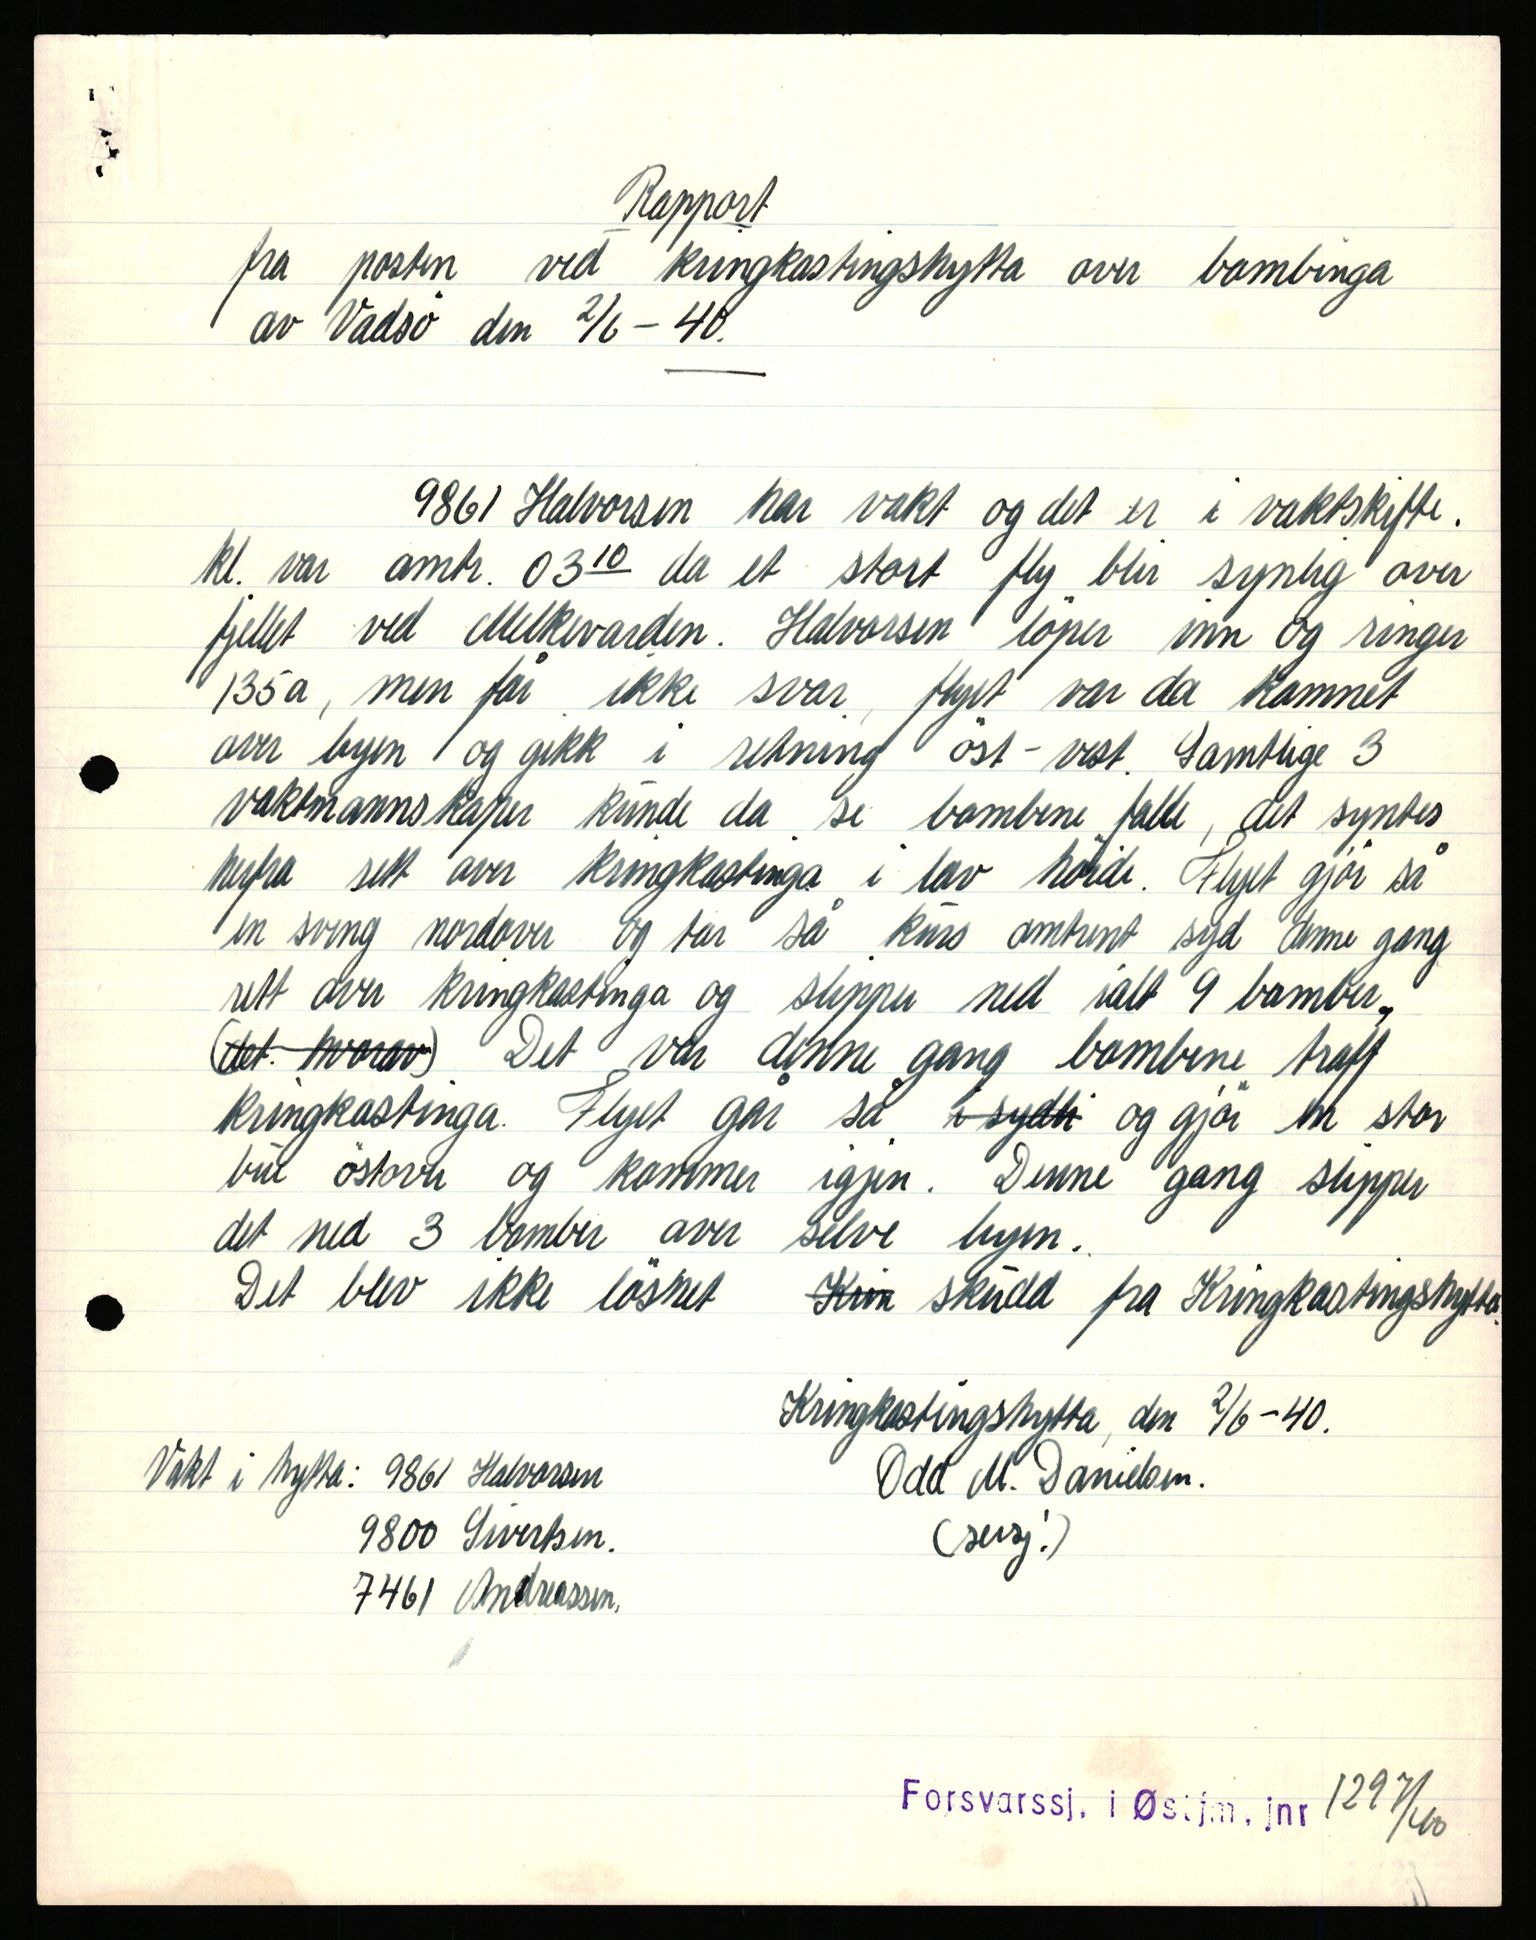 Rapport
fra posten ved kringkastingshytta over bombinga
av Vadsö den 2/6 - 40.
9861 Halvorsen har vakt og det er i vaktskifte.
kl. var omtr. 03 10 da et stort fly blir synlig over
fjellet ved Melkevarden. Halvorsen löper inn og ringer
135a, men får ikke svar, flyet var da kommet
over byen og gikk i retning öst - vest. Samtlige 3
vaktmannskaper kunde da se bombene falle, det syntes
herfra rett over kringkastinga i lav höide. Flyet gjör så
en sving nordover og tar så kurs omtrent syd denne gang
rett over kringkastinga og slipper ned ialt 9 bomber,
(det hvorav) Det var denne gang bombene traff
kringkastinga. Flyet går så i sydli og gjör en stor
bue östover og kommer igjen. Denne gang slipper
det ned 3 bomber over selve byen.
Det blev ikke lösnet Krin skudd fra Kringkastingshytta.
Kringkastingshytta, den 2/6 - 40.
Odd M. Danielsen.
(sersj.)
Vakt i hytta: 9861 Halvorsen
9800 Sivertsen.
7461 Andreassen.
Forsvarssj. i Østfm. jnr 1297/40